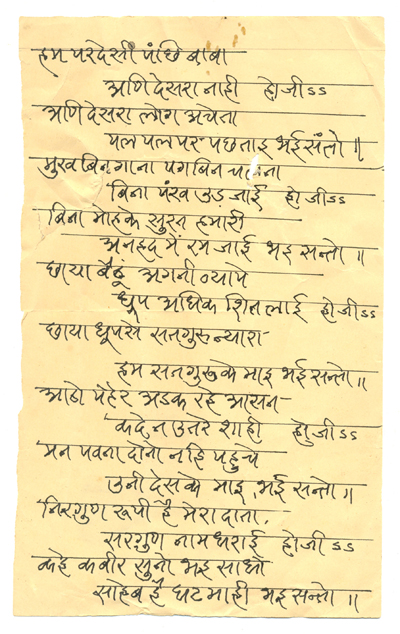 हम परदेसी पंछि बाबा
अणि देसरा नाही होजीऽऽ
अणि देसरा लोग अचेता
पल पल पर पछताइ भई संतो॥
मुख बिन गाना पग बिन चलना
बिना पंख उड़ जाई होजीऽऽ
बिना मोहके सुरत हमारी
अनहद में रम जाई भइ सन्तो॥
छाया बैठूं अगनी व्यापे
धूप अधिक शितलाई होजीऽऽ
छाया धूपसे सतगुरु न्यारा
हम सतगुरुके माइ भई सन्तो॥
आठो पेहेर अडक रहे आसन
कदे न उतरे शाही होजीऽऽ
मन पवना दोनो नहि पहुचे
उनी देसके माइ भई सन्तो॥
निरगुण रूपी है मेरा दाता
सरगुण नाम धराई होजीऽऽ
कहे कबीर सुनो भइ साधो
साहेब है घट माही भइ सन्तो॥